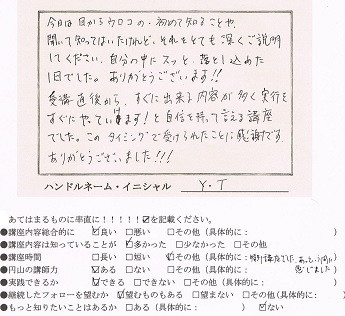 今日は目からウロコの・初めて知ることや、
聞いて知ってはいたけれど、それをとても深くご説明
してくださり、自分の中にスッと落とし込めた
1日でした。ありがとうございます!!
受講直後から、すぐに出来る内容が多く実行を
すぐにやっていけます!と自信を持って言える講座
でした。このタイミングで受けられたことに感謝です
ありがとうございました!!!
ハンドルネーム・イニシャル Y・T
あてはまるものに率直に!!!!!☑を記載ください。
●講座内容総合的に ☑良い □悪い □その他(具体的に: )
●講座内容は知っていることが ☑多かった □少なかった □その他
●講座時間 □長い □短い ☑その他(具体的に: 講座でした。あっという間に感じました)
●円山の講師力 ☑ある □ない □その他(具体的に: )
●実践できるか ☑できる □できない □その他(具体的に: )
●継続したフォローを望むか ☑望むものもある □望まない □その他(具体的に: )
●もっと知りたいことはあるか □ある( ) ☑ない